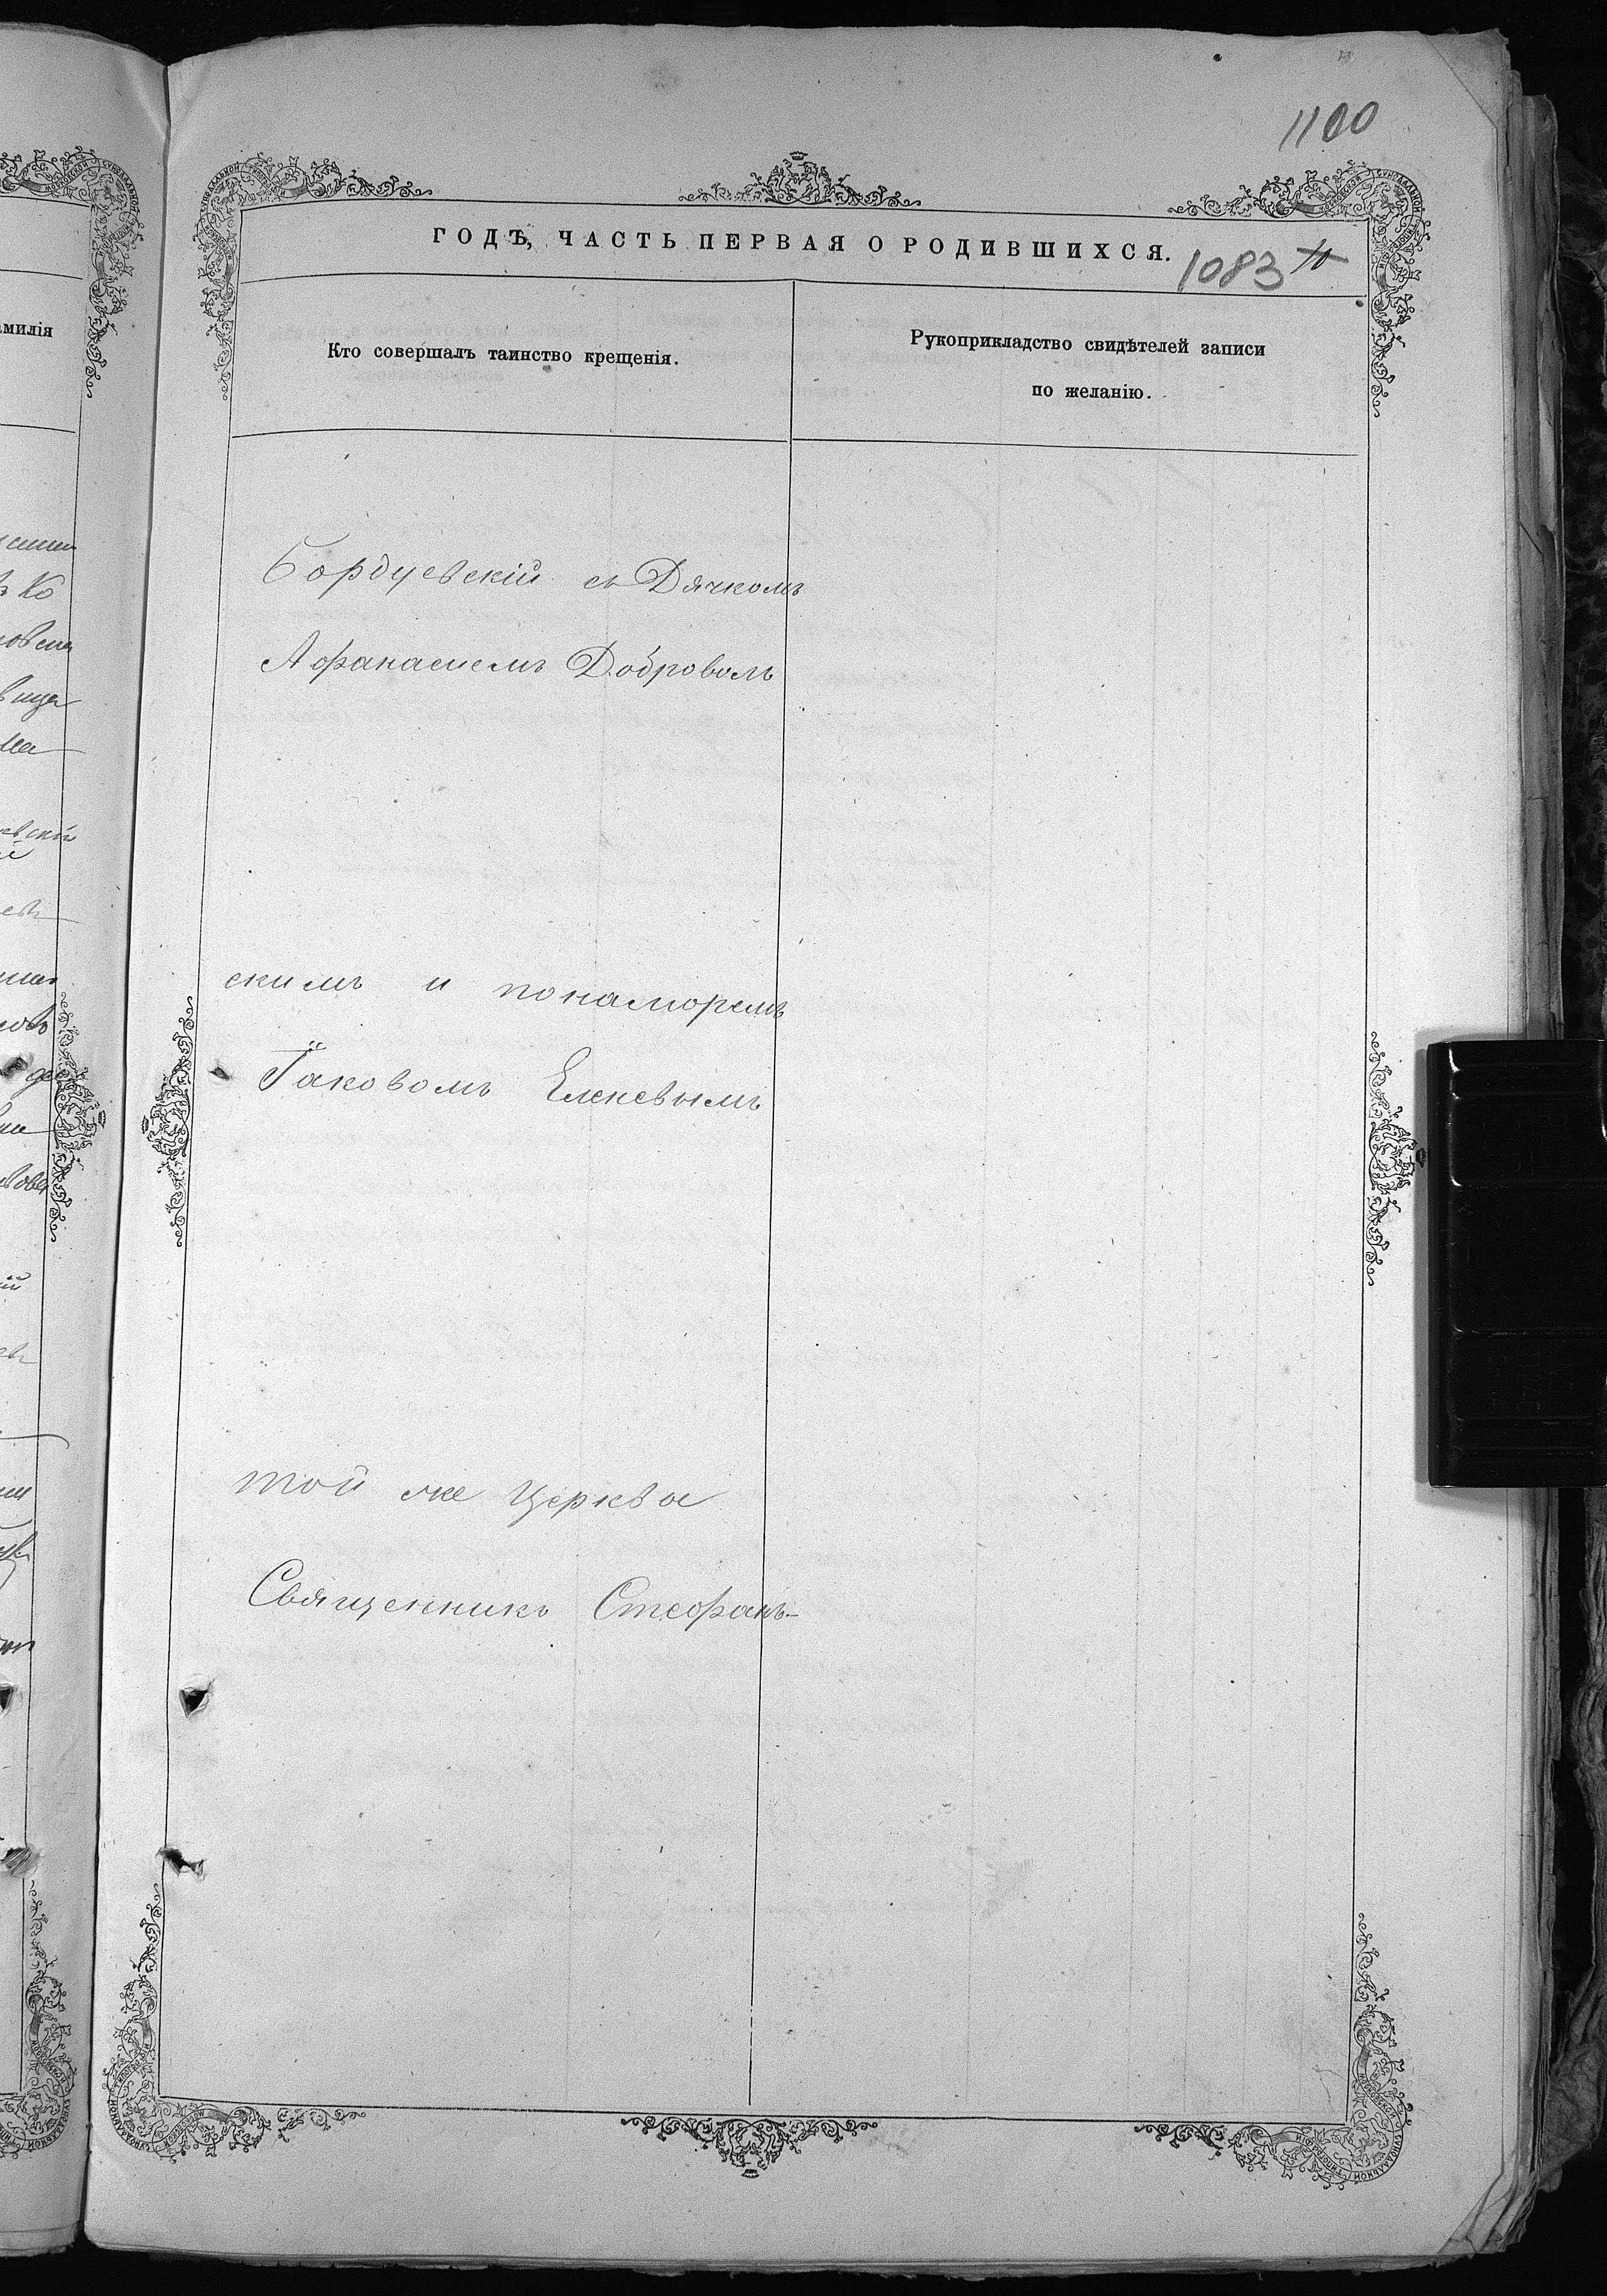 1100
ГОДѢ, ЧАСТЬ ПЕРВАЯ О РОДИВШИХСЯ.
1083
Кто совершалъ таинство крещенія.
Рукоприкладство свидѣтелей записи
по желанію.
амилія
Бордуевскій съ Дячкомъ
Афанасиемъ Доброволь
скимъ и понаморемъ
Їаковомъ Елекевымъ
той же Церквы
Священникъ Стефанъ-